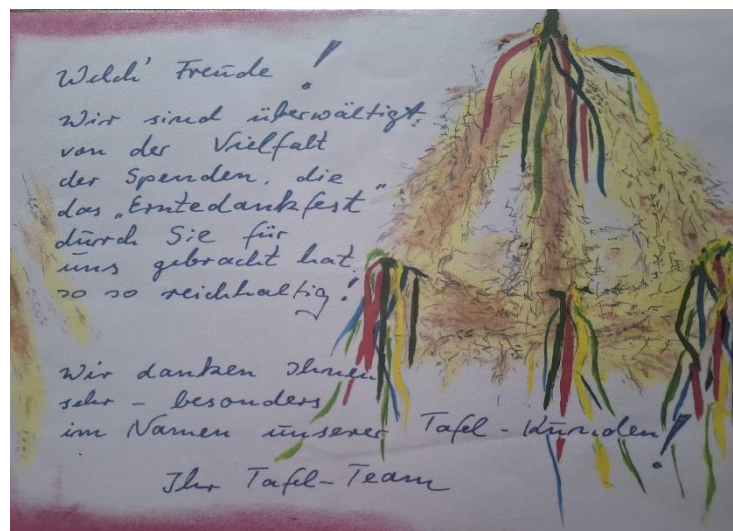 Welch' Freude!
Wir sind überwältigt
von der Vielfalt
der Spenden, die
das „Erntedankfest"
durch Sie für
uns gebracht hat.
so so reichhaltig!
Wir danken Ihnen
sehr – besonders
im Namen unserer Tafel-Kunden!
Ihr Tafel-Team